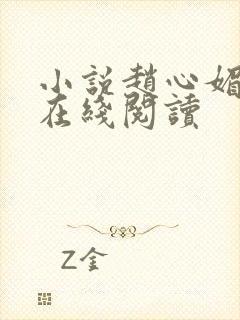 小說趙心媚
在綫閱讀
Z金